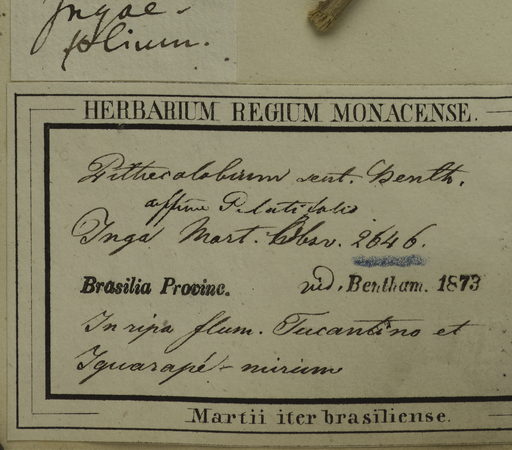 Ingae-
folium.
HERBARIUM REGIUM MONACENSE.
Pithecolobium sent. Benth.
affine P. latifolio
Inga Mart. Obsv. 2646.
Brasilia Provinc. vid. Bentham. 1873
In ripa flum. Tucantino et
Iguarapé-mirium
Martii iter brasiliense.